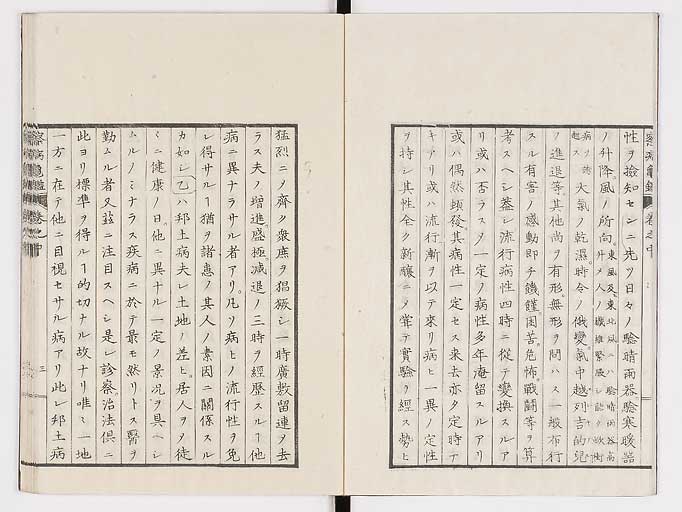 性ヲ撿知センニ先ツ日々ノ驗晴雨器驗寒暖器
ノ升降風ノ所向
大氣ノ乾濕時令ノ俄變氣中越列吉的兒
ノ進退等其他尚ヲ有形無形ヲ問ハス一般布行
スル有害ノ感動即チ饑饉困苦危怖戰鬪等ヲ算
考スヘシ蓋シ流行病性四時ニ從テ變換スルア
リ或ハ否ラスヌ一定ノ病性多年淹留スルアリ
或ハ偶然頓發其病性一定セス来去亦タ定時ナ
キアリ或ハ流行漸ヲ以テ來リ病ヒ一異ノ定性
ヲ持シ其性全ク新釀ニメ甞テ實驗ヲ經ス勢ヒ
猛烈ニメ齊ク衆庶ヲ猖獗シ一時廣敷留連ヲ去
ラス夫ノ増進盛極減退ノ三時ヲ經歴スルヿ他
病ニ異ナラサル者アリ凡ソ病ヒノ流行性ヲ免
レ得サルヿ猶ヲ諸患ノ其人ノ素因ニ關係スル
カ如シ乙ハ邦土病夫レ土地ノ差ヒ居人ヲメ徒
ミニ健康ノ日他ニ異ナル一定ノ景况ヲ具ヘシ
ムルノミナラス疾病ニ於テ最モ然リトス醫ヲ
勤ムル者又玆ニ注目スヘシ是レ診察治法倶ニ
此ヨリ標準ヲ得ルヿ的切ナル故ナリ唯ミ一地
一方ニ在テ他ニ目視セサル病アリ此レ邦土病
三